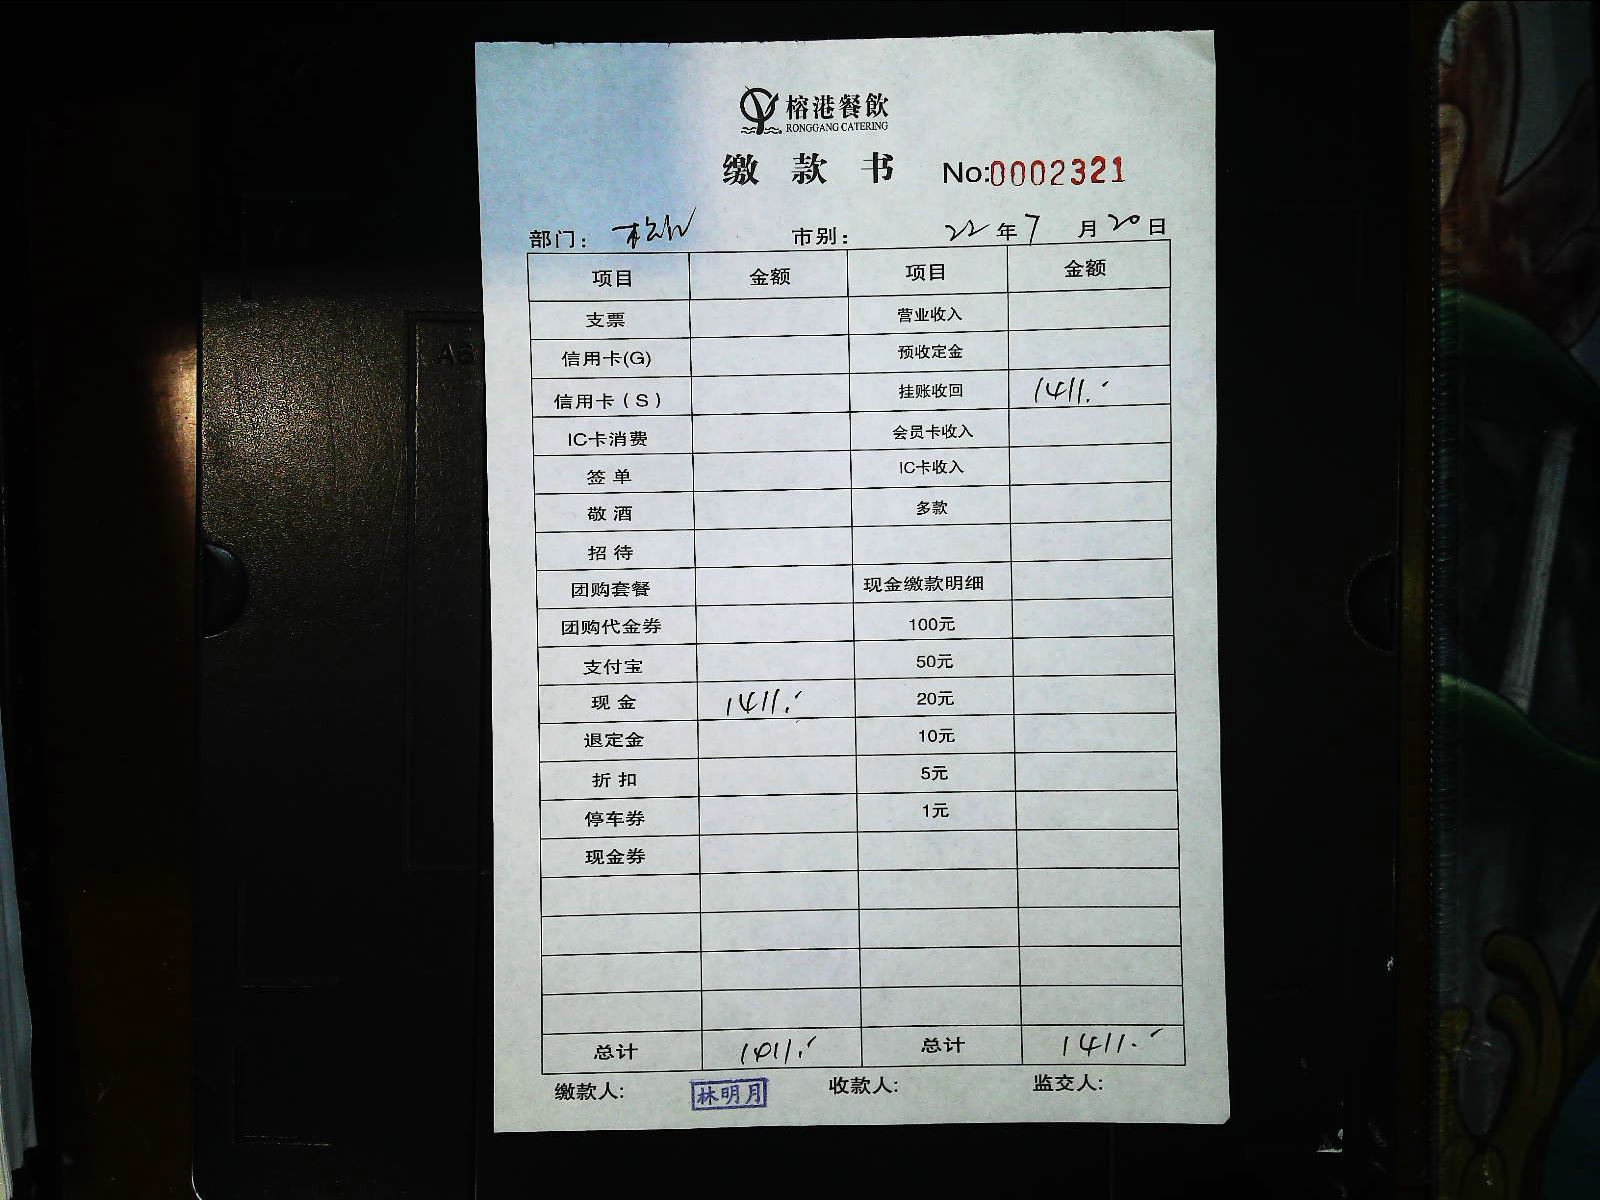 榕港餐飲
RONGGANG CATERING
缴 款 书 No:0002321
部门： 市别： 22 年 7 月 20 日
项目 金额 项目 金额
支票 营业收入
信用卡(G) 预收定金
信用卡（S） 挂账收回 1411.-
IC卡消费 会员卡收入
签 单 IC卡收入
敬 酒 多款
招 待
团购套餐 现金缴款明细
团购代金券 100元
支付宝 50元
现 金 1411.- 20元
退定金 10元
折 扣 5元
停车券 1元
现金券
总计 1411.- 总计 1411.-
缴款人: 林明月 收款人: 监交人: